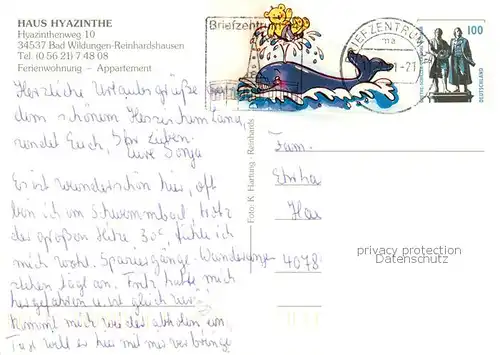 HAUS HYAZINTHE
Hyazinthenweg 10
34537 Bad Wildungen-Reinhardshausen
Tel. (0 56 21) 7 48 08
Ferienwohnung – Appartement
Briefzentrum
BRIEFZENTRUM
100
DEUTSCHLAND
Herzliche Urlaubsgrüße aus
dem schönem Hessenland
sendet Euch, Ihr Lieben
Eure Sonja
Es ist wunderschön hier, oft
bin ich im Schwimmbad, trotz
der großen Hitze, 30° fühle ich
mich wohl. Spaziergänge Wanderungen
stehen tags an. Fritz hatte mich
hergefahren u. ist gleich
kommt mich wieder abholen ein
Tag will er hier mit mir verbringen
Foto: K. Hartung, Reinhards
Fam.
Ehrha
Hau
4078
privacy protection
Datenschutz